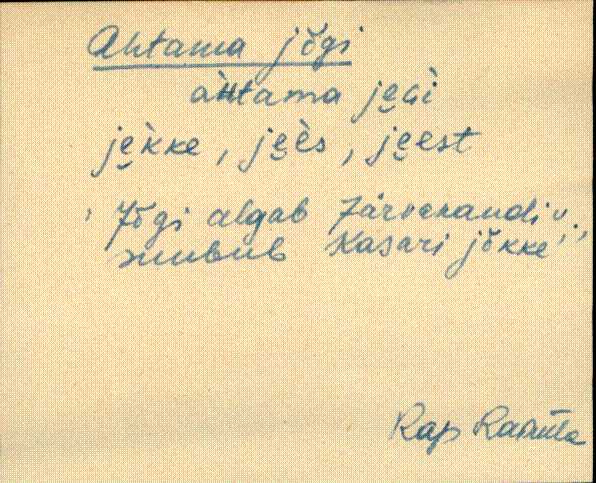 Ahtama jõgi
àhtama je̮Gì
jè̮kke, je̮ès, je̮est
Jõgi algab Järvakandi v.,
suubub Kasari jõkke
Rap Raikküla